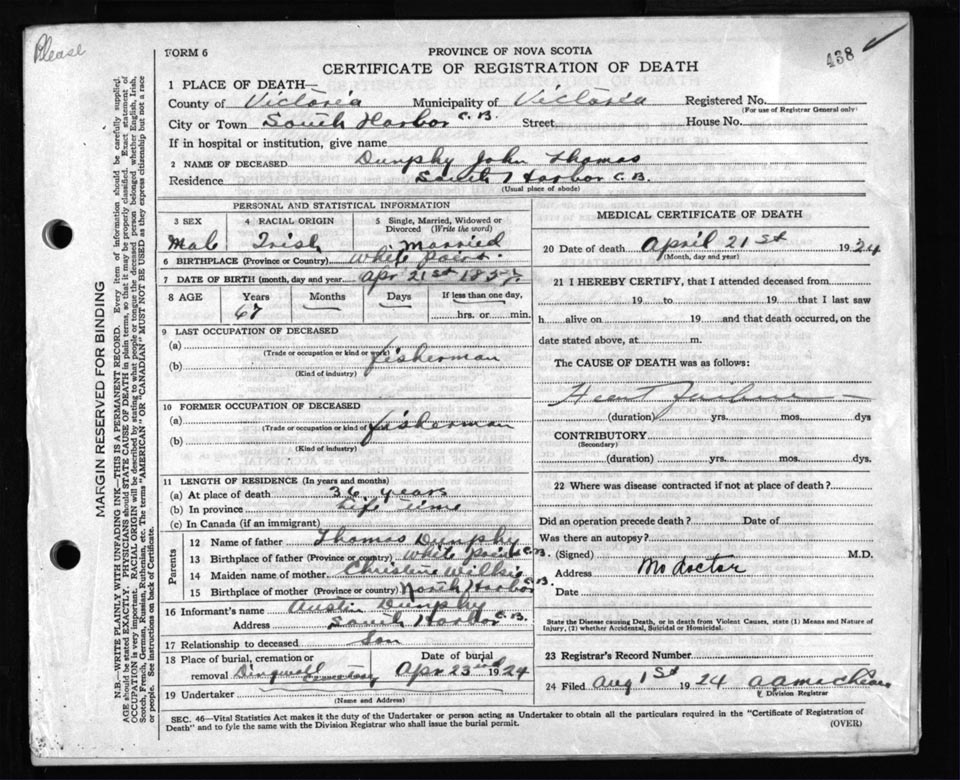 Please
438
FORM 6
PROVINCE OF NOVA SCOTIA
CERTIFICATE OF REGISTRATION OF DEATH
MARGIN RESERVED FOR BINDING
N.B.—WRITE PLAINLY WITH UNFADING INK—THIS IS A PERMANENT RECORD. Every item of information should be carefully supplied.
AGE should be stated EXACTLY. PHYSICIANS should STATE CAUSE OF DEATH in plain terms, so that it may be properly classified. Exact statement of
OCCUPATION is very important. RACIAL ORIGIN will be described by stating to what people or tongue the deceased person belonged whether English, Irish,
Scotch, French, German, Russian, Ruthenian, etc. The terms "AMERICAN" OR "CANADIAN" MUST NOT BE USED as they express citizenship but not a race
or people. See instructions on back of Certificate.
1 PLACE OF DEATH—
County of Victoria Municipality of Victoria Registered No.
(For use of Registrar General only)
City or Town South Harbor C.B. Street House No.
If in hospital or institution, give name
2 NAME OF DECEASED Dunphy John Thomas
Residence South Harbor C.B.
(Usual place of abode)
PERSONAL AND STATISTICAL INFORMATION
3 SEX Male
4 RACIAL ORIGIN Irish
5 Single, Married, Widowed or Divorced (Write the word) Married
6 BIRTHPLACE (Province or Country) White Point
7 DATE OF BIRTH (month, day and year) Apr 21st
8 AGE Years 67 Months Days If less than one day, hrs. or min.
9 LAST OCCUPATION OF DECEASED
(a) fisherman
(Trade or occupation or kind or work)
(b)
(Kind of industry)
10 FORMER OCCUPATION OF DECEASED
(a) fisherman
(Trade or occupation or kind of work)
(b)
(Kind of industry)
11 LENGTH OF RESIDENCE (In years and months)
(a) At place of death 36 years
(b) In province Life time
(c) In Canada (if an immigrant)
Parents
12 Name of father Thomas Dunphy
13 Birthplace of father (Province or country) White Point C.B.
14 Maiden name of mother Christine Wilkie
15 Birthplace of mother (Province or country) North Harbor C.B.
16 Informant's name Austin Dunphy
Address South Harbor C.B.
17 Relationship to deceased Son
18 Place of burial, cremation or removal Dingwall Cemetery
Date of burial Apr 23rd 1924
19 Undertaker
(Name and Address)
MEDICAL CERTIFICATE OF DEATH
20 Date of death April 21st 1924
(Month, day and year)
21 I HEREBY CERTIFY, that I attended deceased from
19 to 19 that I last saw
h alive on 19 and that death occurred, on
date stated above, at m.
The CAUSE OF DEATH was as follows:
Heart Failure
(duration) yrs. mos. dys
CONTRIBUTORY
(Secondary)
(duration) yrs. mos. dys.
22 Where was disease contracted if not at place of death?
Did an operation precede death? Date of
Was there an autopsy?
(Signed) M.D.
Address No doctor
Date
State the Disease Causing Death, or in death from Violent Causes, state (1) Means and Nature of
Injury, (2) whether Accidental, Suicidal or Homicidal.
23 Registrar's Record Number
24 Filed Aug 1st 1924
Division Registrar
SEC. 46—Vital Statistics Act makes it the duty of the Undertaker or person acting as Undertaker to obtain all the particulars required in the "Certificate of Registration of
Death" and to fyle the same with the Division Registrar who shall issue the burial permit.
(OVER)